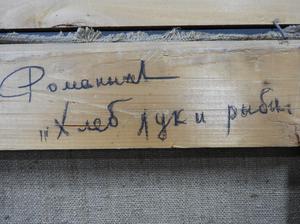 Романыч
„Хлеб лук и рыбы.